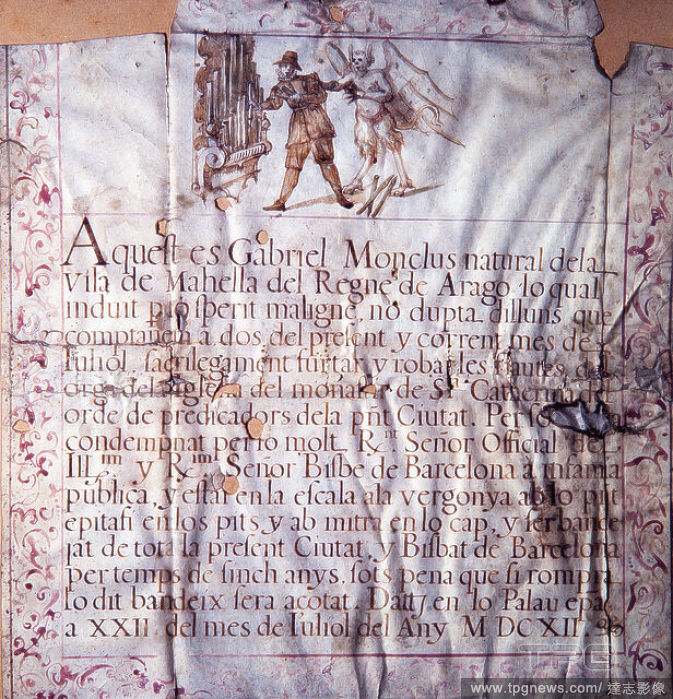 Aqueſt es Gabriel Monclus natural dela
Vila de Mahella del Regne de Arago lo qual
induit pro ſperit maligne, no dupta dilluns que
comptauen a dos del preſent y corrent mes de
Iuliol, ſacrilegament furtar y robar les flautes del
orga dela igleſia del monaſtir de Sta Catherina
orde de predicadors dela pñt Ciutat. Perço
condempnat per lo molt Rnt Señor Official del
Illmm y Rmm Señor Biſbe de Barcelona a infamia
publica, y eſtar en la eſcala ala vergonya ab lo pñt
epitafi en los pits, y ab mitra en lo cap, y ſer bande
jat de tota la preſent Ciutat, y Biſbat de Barcelona
per temps de ſinch anys, ſots pena que ſi rompra
lo dit bandeix ſera açotat. Datt en lo Palau
a XXII del mes de Iuliol del Any M DCXII
TPG
www.tpgnews.com/ 達志影像